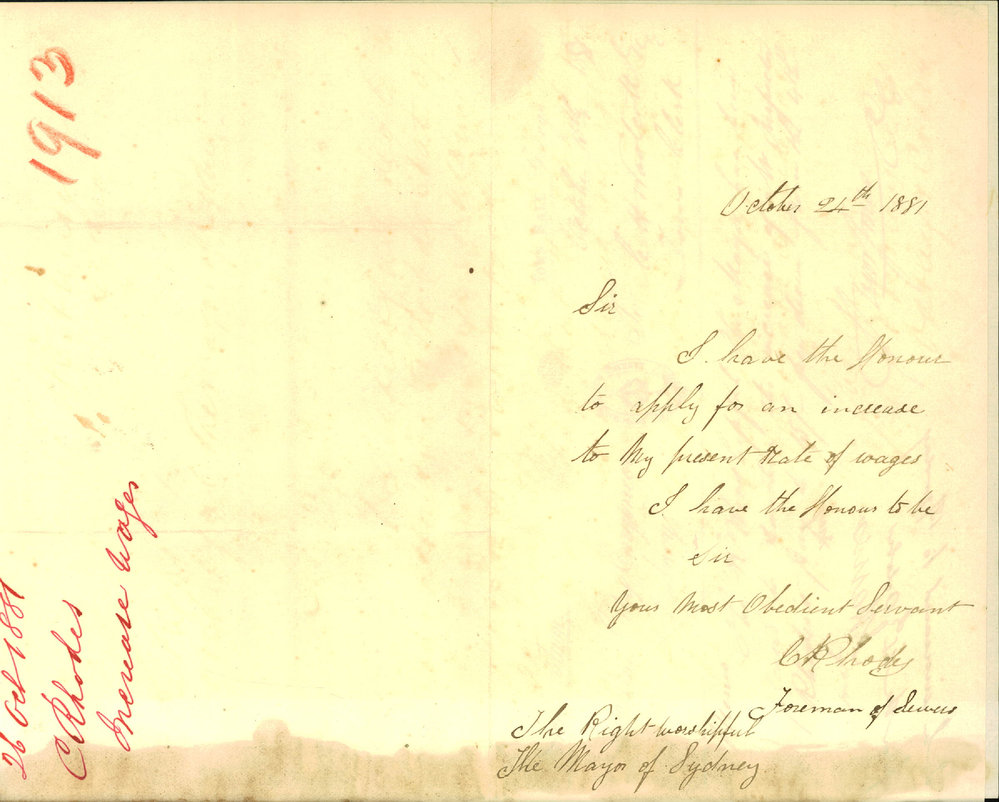 1913
26 Oct 1881
C Rhodes
Increase Wages
October 24th 1881
Sir
I have the Honour
to apply for an increase
to My present Rate of wages
I have the Honour to be
Sir
Your Most Obedient Servant
C Rhodes
Foreman of Sewers
The Right worshipful
The Mayor of Sydney